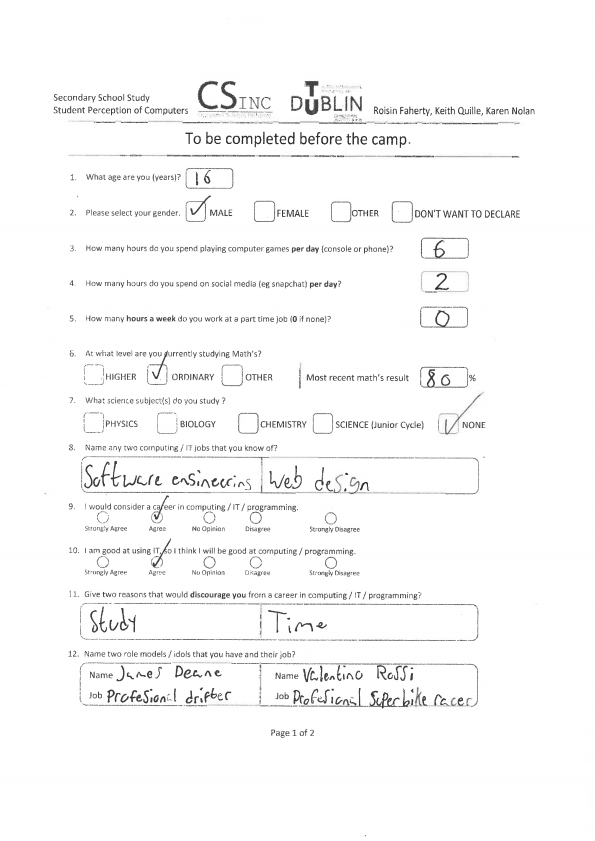 Secondary School Study
Student Perception of Computers
CSINC
TU DUBLIN
Roisin Faherty, Keith Quille, Karen Nolan
To be completed before the camp.
1. What age are you (years)? 16
2. Please select your gender. MALE FEMALE OTHER DON'T WANT TO DECLARE
3. How many hours do you spend playing computer games per day (console or phone)? 6
4. How many hours do you spend on social media (eg snapchat) per day? 2
5. How many hours a week do you work at a part time job (0 if none)? 0
6. At what level are you currently studying Math's?
HIGHER ORDINARY OTHER Most recent math's result 80 %
7. What science subject(s) do you study ?
PHYSICS BIOLOGY CHEMISTRY SCIENCE (Junior Cycle) NONE
8. Name any two computing / IT jobs that you know of?
Software engineering Web design
9. I would consider a career in computing / IT / programming.
Strongly Agree Agree No Opinion Disagree Strongly Disagree
10. I am good at using IT, so I think I will be good at computing / programming.
Strongly Agree Agree No Opinion Disagree Strongly Disagree
11. Give two reasons that would discourage you from a career in computing / IT / programming?
Study Time
12. Name two role models / idols that you have and their job?
Name James Deane Name Valentino Rossi
Job Profesional drifter Job Profesional Superbike racer
Page 1 of 2